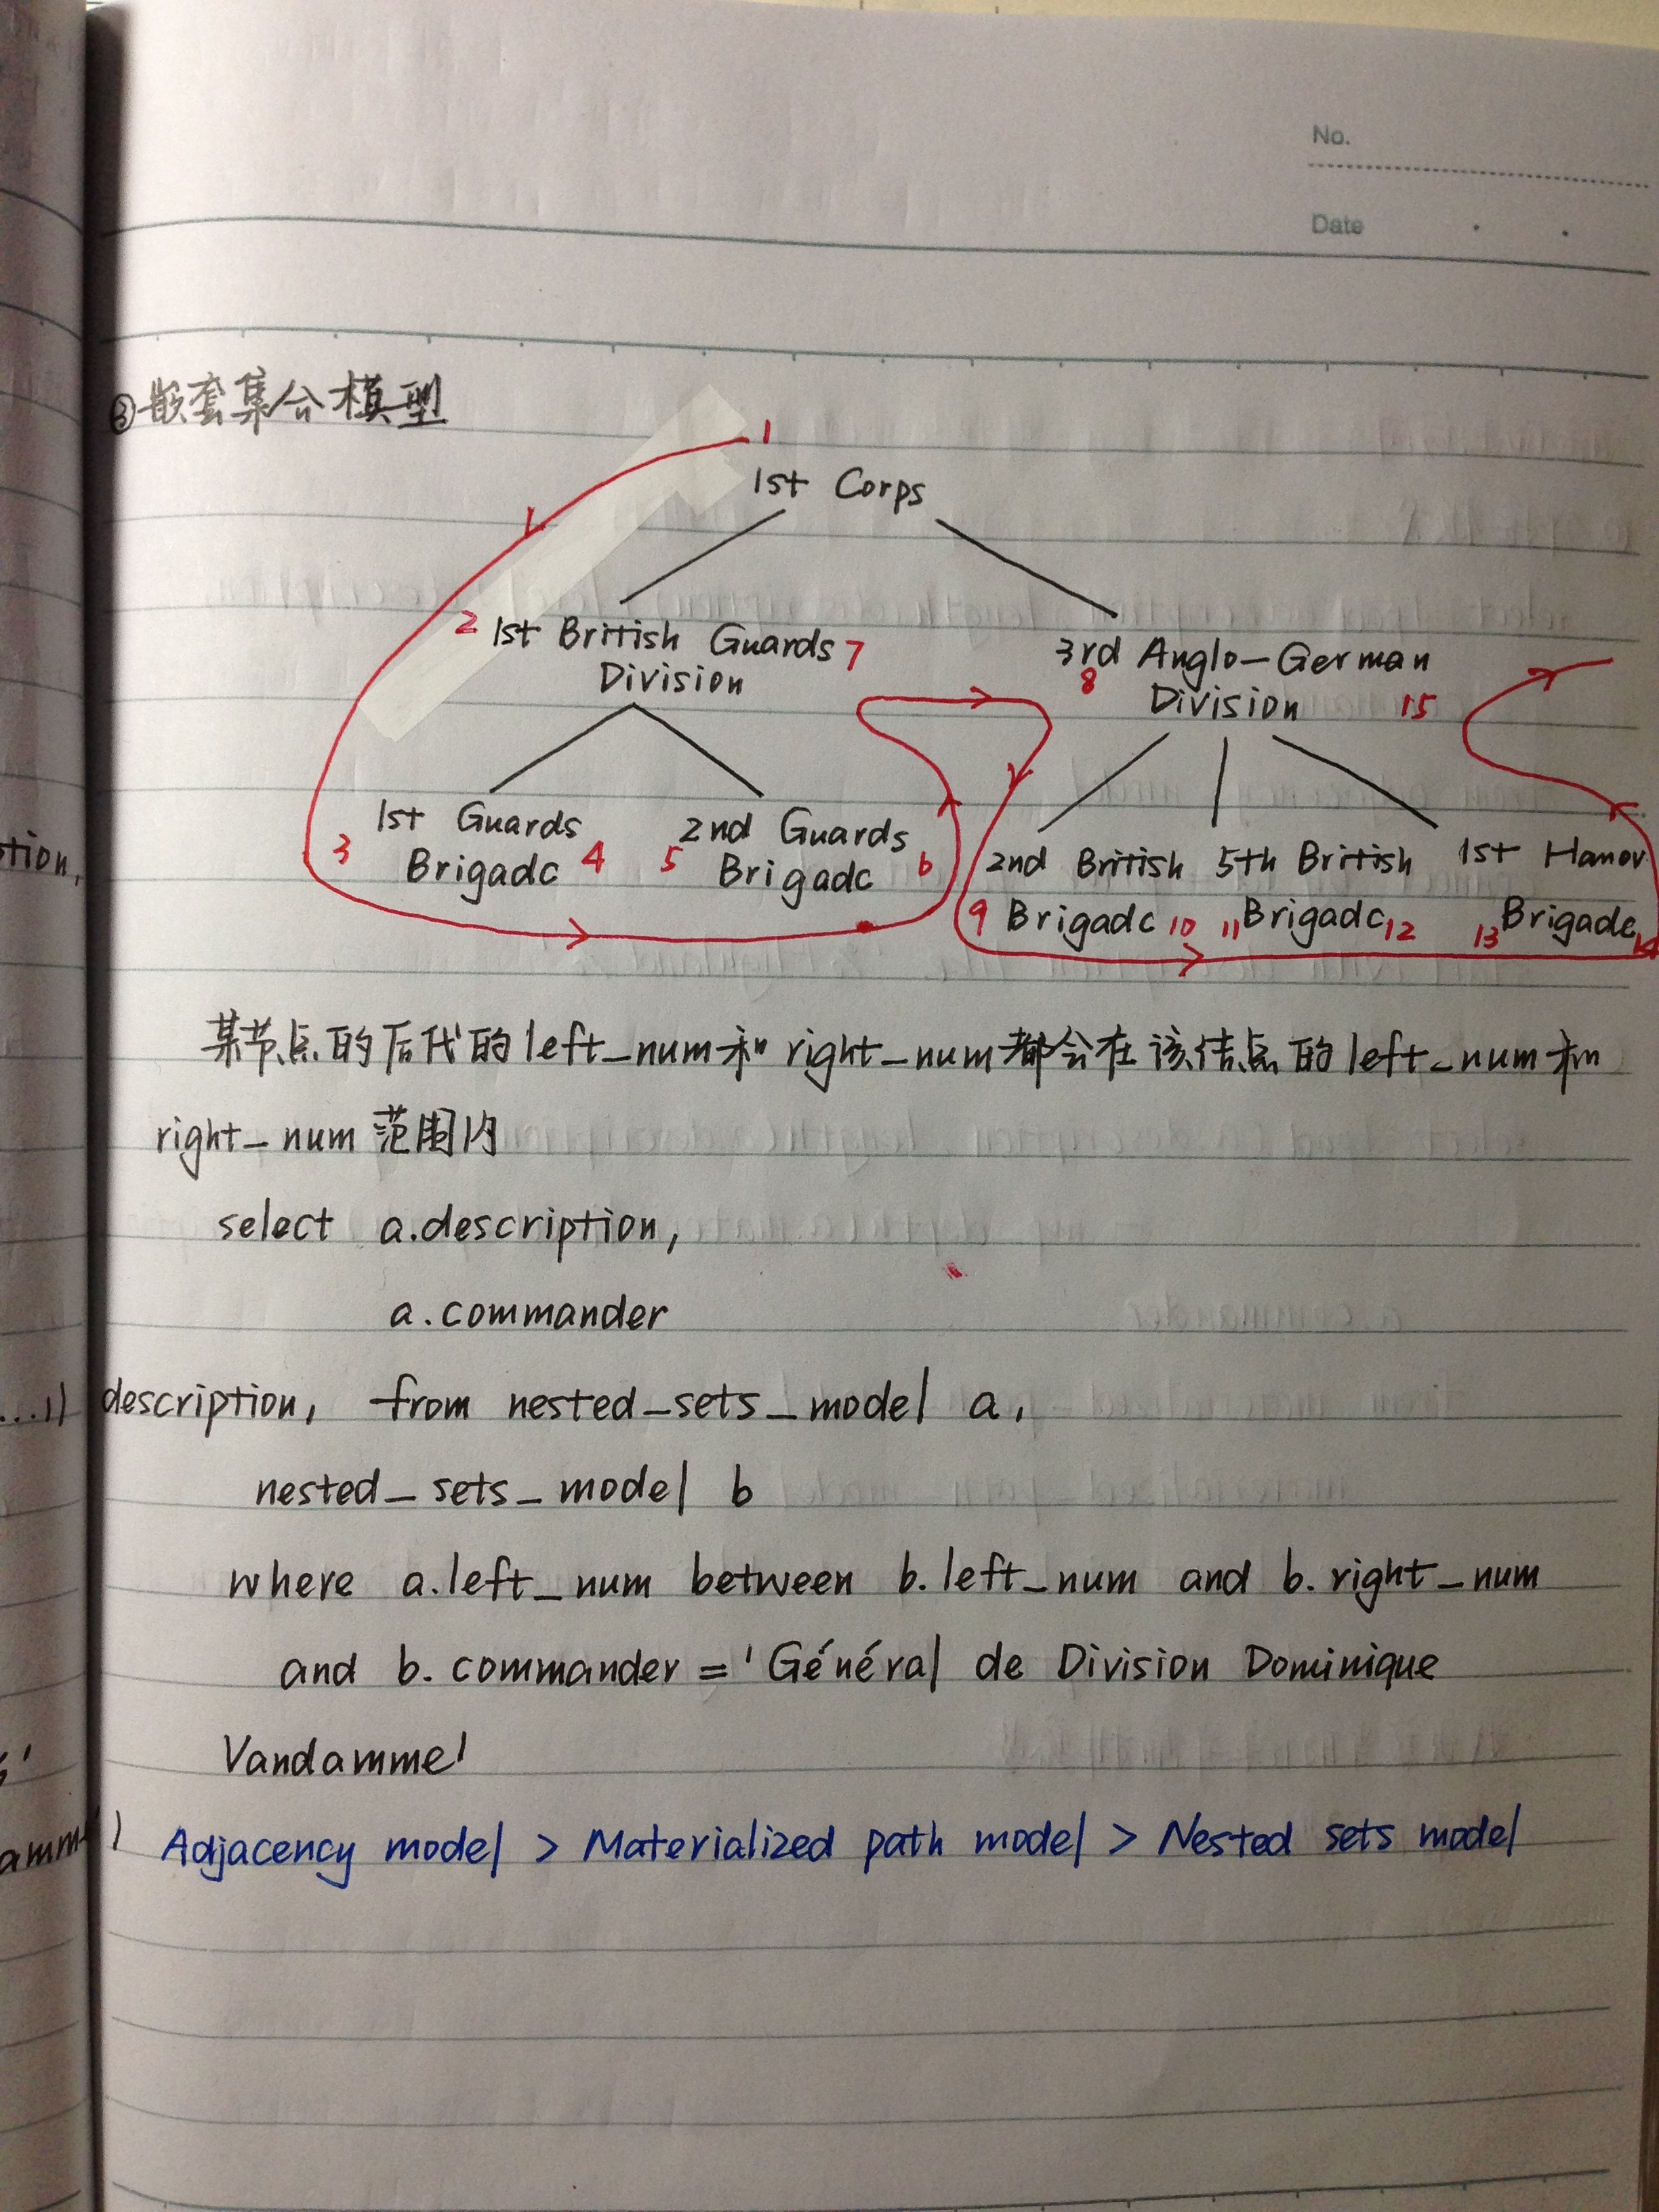 No.
Date
③嵌套集合模型
1
1st Corps
2 1st British Guards 7
Division
3rd Anglo-German
8 Division 15
1st Guards
3 Brigade 4
2nd Guards
5 Brigade 6
2nd British
9 Brigade 10
5th British
11 Brigade 12
1st Hanov
13 Brigade 14
某节点的后代的left_num和right_num都会在该结点的left_num和
right_num范围内
select a.description,
a.commander
description, from nested_sets_model a,
nested_sets_model b
where a.left_num between b.left_num and b.right_num
and b.commander = 'Général de Division Dominique
Vandamme'
Adjacency model > Materialized path model > Nested sets model
tion,
...1)
s'
amme')